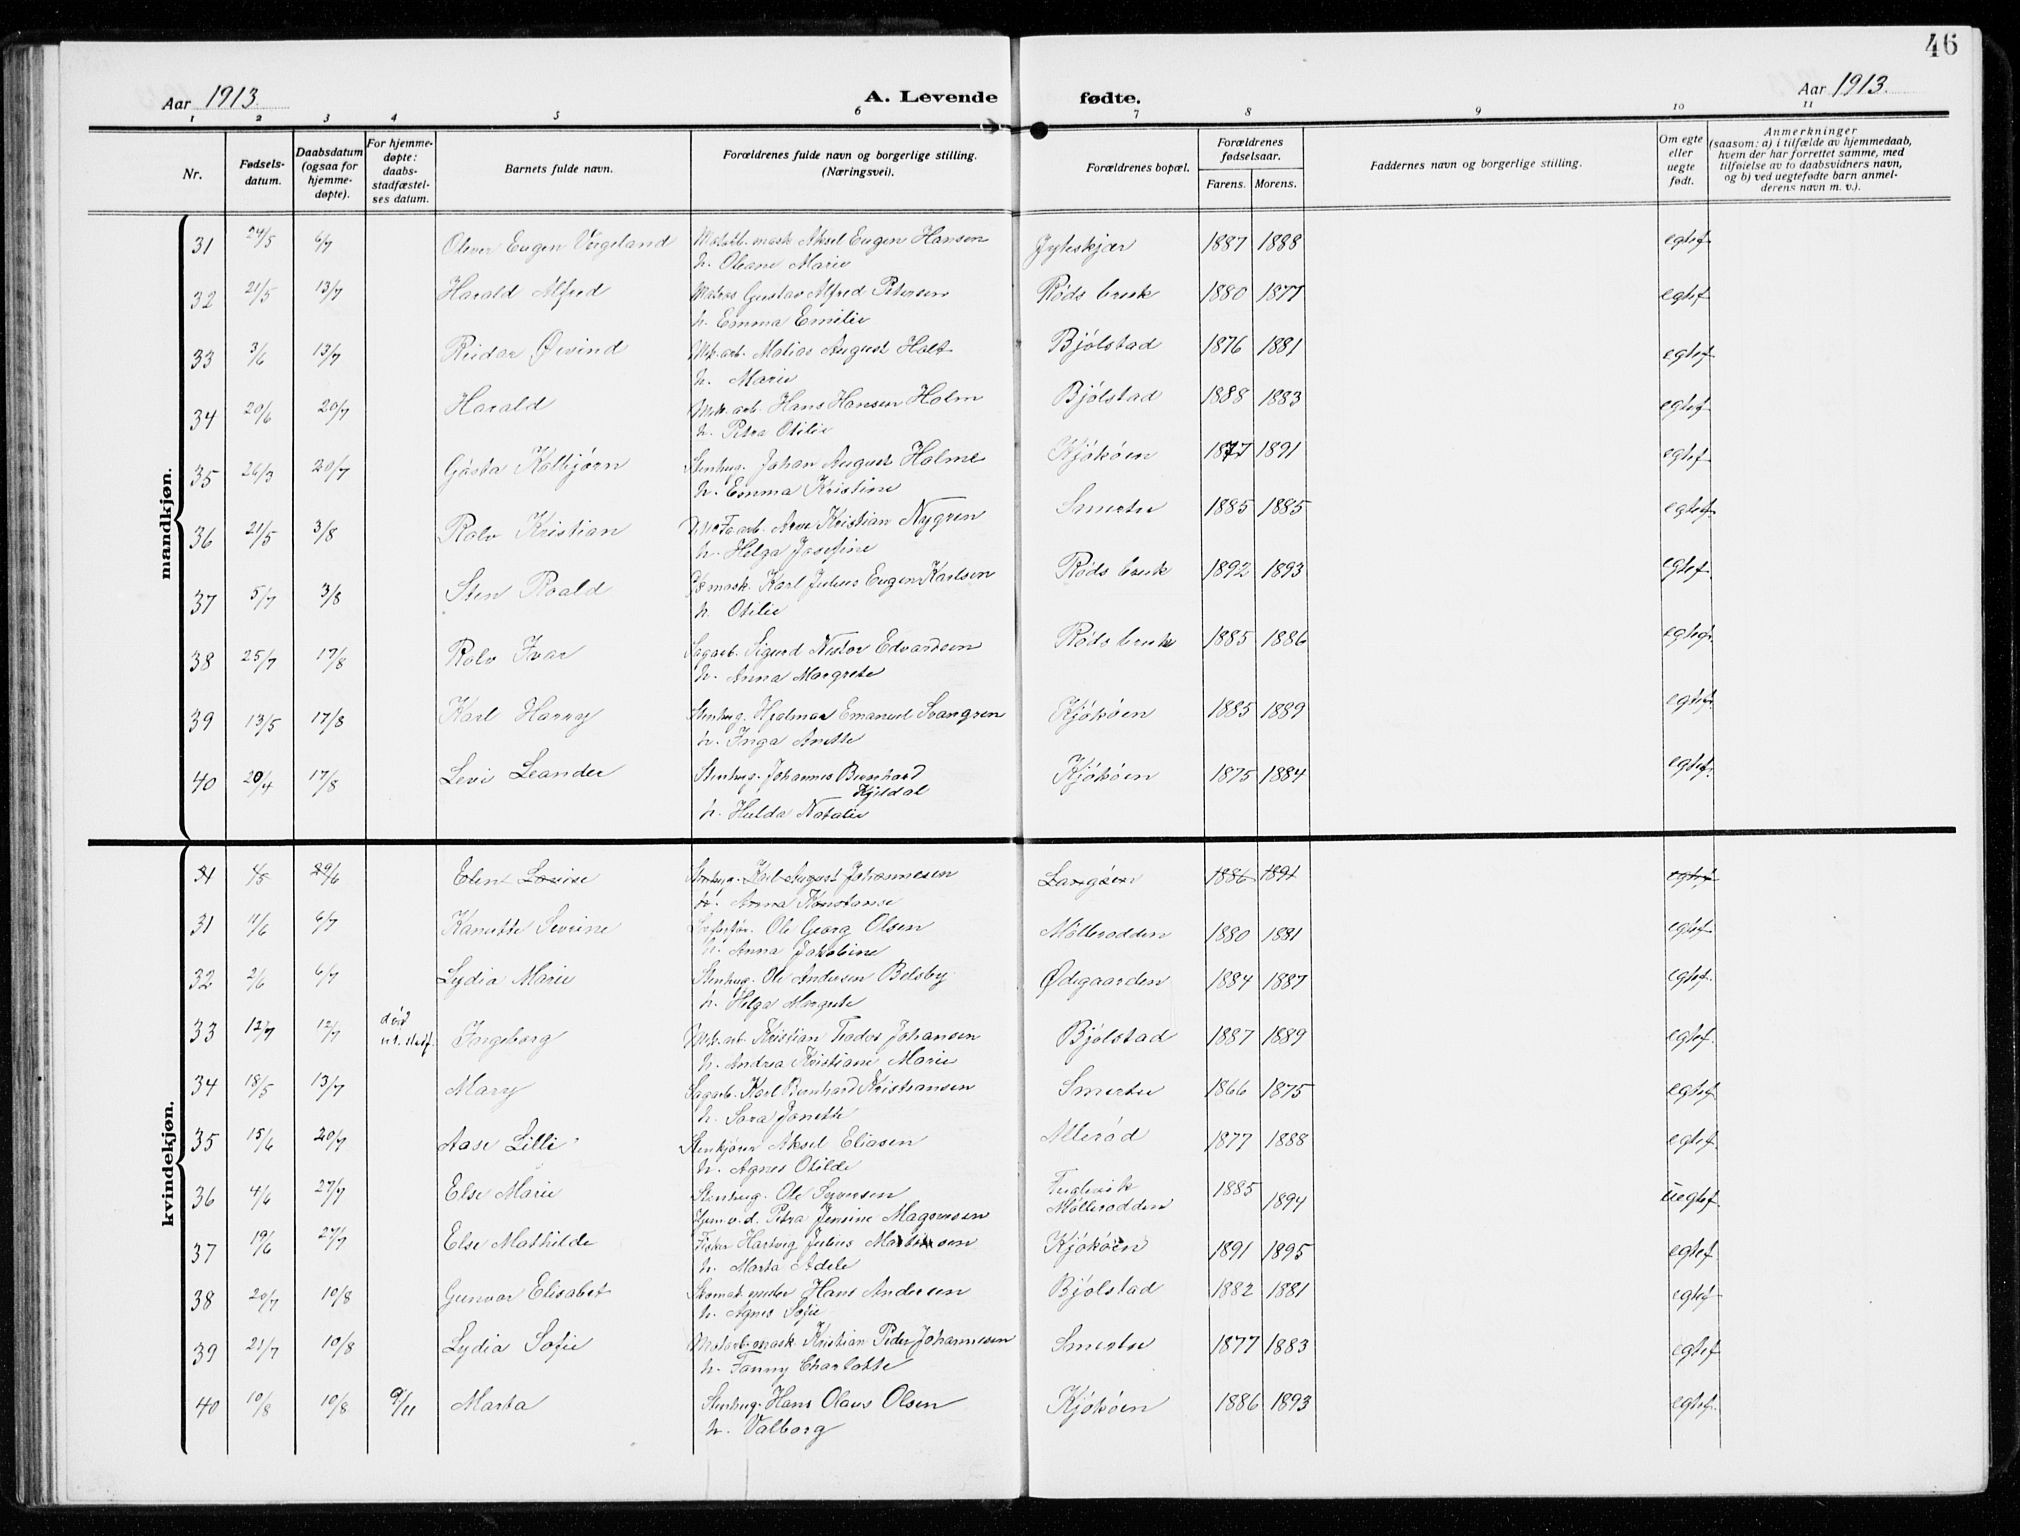 46
Aar 1913.
A. Levende fødte.
Aar 1913.
1 2 3 4 5 6 7 8 9 10 11
Nr.
Fødsels-
datum.
Daabsdatum
(ogsaa for
hjemme-
døpte).
For hjemme-
døpte:
daabs-
stadfæstel-
ses datum.
Barnets fulde navn.
Forældrenes fulde navn og borgerlige stilling.
(Næringsvei).
Forældrenes bopæl.
Forældrenes
fødselsaar.
Farens. Morens.
Faddernes navn og borgerlige stilling.
Om egte
eller
uegte
født.
Anmerkninger
(saasom: a) i tilfælde av hjemmedaab,
hvem der har forrettet samme, med
tilføielse av to daabsvidners navn,
og b) ved uegtefødte barn anmel-
derens navn m. v.).
mandkjøn.
31 24/5 6/7 Oliver Eugen Vegeland mask. Aksel Eugen Hansen 1887 1888 egtef.
h. Oleane Marie
32 21/5 13/7 Harald Alfred Matros Gustav Alfred Petersen Røds bruk 1880 1877 egtef.
h. Emma Emilie
33 3/6 13/7 Reidar Øivind Mek. arb. Matias August Holt Bjølstad 1876 1881 egtef.
h. Marie
34 20/6 20/7 Harald Mek. arb. Hans Hansen Holm Bjølstad 1888 1883 egtef.
h. Petra Otilie
35 26/3 20/7 Gösta Kolbjørn Stenhug. Johan August Holme Kjøkøen 1877 1891 egtef.
h. Emma Kristine
36 21/5 3/8 Rolv Kristian Kristian Nygren Smertu 1885 1885 egtef.
h. Helga Josefine
37 5/7 3/8 Sten Roald mask. Karl Julius Eugen Karlsen Røds bruk 1892 1893 egtef.
h. Otilie
38 25/7 17/8 Rolv Ivar Sagarb. Sigurd Nestor Edvardsen Røds bruk 1885 1886 egtef.
h. Anna Margrete
39 13/5 17/8 Karl Harry Stenhug. Hjalmar Emanuel Svangren Kjøkøen 1885 1889 egtef.
h. Inga Anette
40 20/4 17/8 Levi Leander Stenhug. Johannes Bernhard Kjøkøen 1875 1884 egtef.
Kjildal
h. Hulda Natalie
kvindekjøn.
31 4/5 29/6 Elen Lovise Stenhug. Karl August Johannesen Langøen 1886 1891 egtef.
h. Anna Konstanse
31 11/6 6/7 Kanutte Sevrine Ole Georg Olsen Møllerodden 1880 1881 egtef.
h. Anna Jakobine
32 2/6 6/7 Lydia Marie Stenhug. Ole Andersen Belsby Ødegaarden 1884 1887 egtef.
h. Helga Margrete
33 12/7 12/7 død Ingeborg Mek. arb. Kristian Teodor Johansen Bjølstad 1887 1889 egtef.
h. Andrea Kristiane Marie
34 18/5 13/7 Mary Sagarb. Karl Bernhard Kristiansen Smertu 1866 1875 egtef.
h. Sara Janette
35 15/6 20/7 Aase Lilli Stenkjører Aksel Eliasen Allerød 1877 1888 egtef.
h. Agnes Otilde
36 4/6 27/7 Else Marie Stenhug. Ole Syversen Fuglevik 1885 1894 uegtef.
Hjem. v. d. Petra Jensine Magnusen Møllerodden
37 19/6 27/7 Else Mathilde Fisker Hartvig Julius Kjøkøen 1891 1895 egtef.
h. Marta Adele
38 20/7 10/8 Gunvor Elisabet Hans Andersen Bjølstad 1882 1881 egtef.
h. Agnes Sofie
39 21/7 10/8 Lydia Sofie mask. Kristian Peder Johannesen Smertu 1877 1883 egtef.
h. Fanny Charlotte
40 10/8 10/8 9/11 Marta Stenhug. Hans Olaus Olsen Kjøkøen 1886 1893 egtef.
h. Valborg